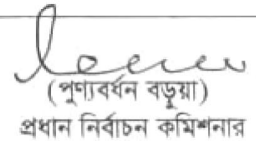 (পুণ্যবর্ধন বড়ুয়া)
প্রধান নির্বাচন কমিশনার